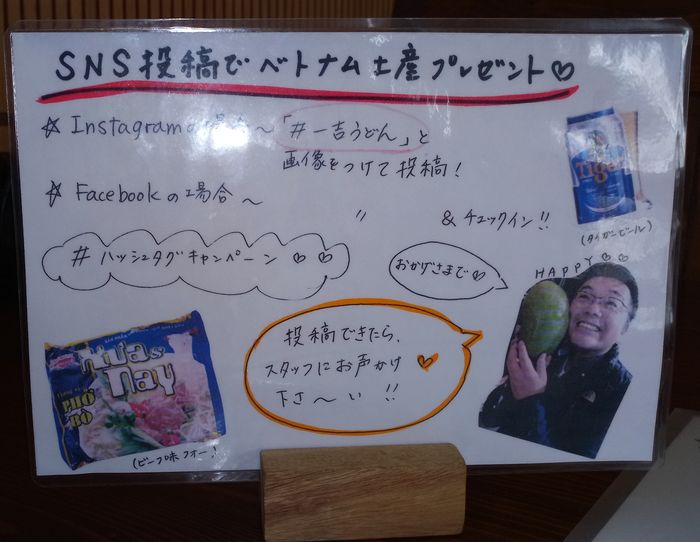 SNS 投稿で ベトナム土産プレゼント♡
☆ Instagramの場合～「#一吉うどん」と
画像をつけて投稿!
☆ Facebookの場合～
〃 &チェックイン!!
Tiger
(タイガービール)
#ハッシュタグキャンペーン♡♡
おかげさまで♡
HAPPY♡♡
投稿できたら、
スタッフにお声かけ
下さ～い!!
Hưa's
Nay
PHỞ
BÒ
(ビーフ味フォー!